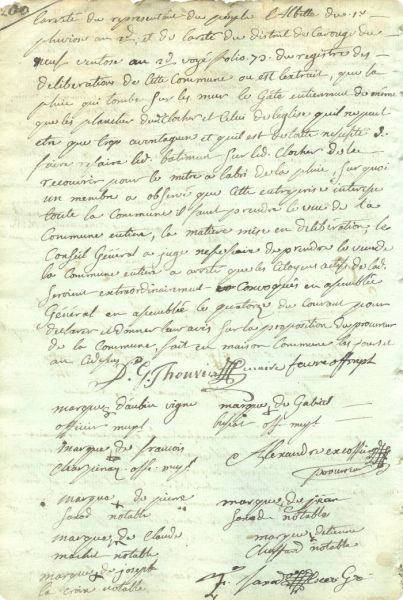 200
l'arreté du representant du peuple Albitte du 1er
pluviose an 2d. et de l'arreté du district de Carouge du
neuf ventose an 2d. voyé folio 72. du registre des
deliberations de cette Commune ou est extrait, que la
pluie qui tombe sur les mur le gâte entierement de meme
que les plancher du clocher et celui de l'eglise qu'il ne peut
etre que trop avantageux et qu'il est de toute necessité de
faire refaire led. batiment sur led. Clocher de le
recouvrir pour le mettre a labri de la pluie, sur quoi
un membre a observé que cette entreprise interesse
toute la Commune il faut prendre le vœu de la
Commune entiere, la matiere mise en deliberation, le
Conseil General a jugé nessessaire de prendre le vœu de
la Commune entiere a arreté que les Citoyens actifs de lad.
seroient extraordinairement convoqués en assemblée
General en assemblée le quatorze du Courant pour
declarer et donner leur avis sur la proposition du procureur
de la Commune, fait en maison Commune les jour et
an
D. G. Thouvex maire feuvre off mpl
marque d'aubin vigne marque de Gabriel
officier mupl off mupl
marque de francois
off. mupl Alexandre excoffier
procureur
marque de pierre marque de jean
notable notable
marque de Claude marque detienne
notable Chaffard notable
marque de joseph
la croix notable